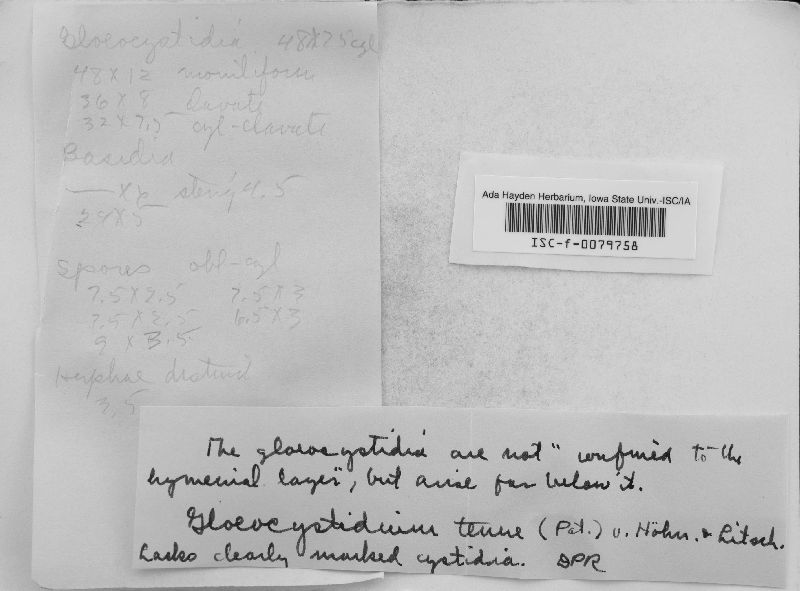 Gloeocystidia 48X7.5 cyl
48X12 moniliform
36 X 8 clavate
32X7.5 cyl-clavate
Basidia
X 6 sterig 4.5
24X5
Spores obl-cyl
7.5X2.5 7.5X3
7.5X2.5 6.5X3
9 X 3.5
Hyphae distinct
3.5
Ada Hayden Herbarium, Iowa State Univ.-ISC/IA
ISC-f-0079758
The gloeocystidia are not "confined to the
hymenial layer", but arise far below it.
Gloeocystidium tenue (Pat.) v. Höhn. & Litsch.
Lacks clearly marked cystidia. DPR